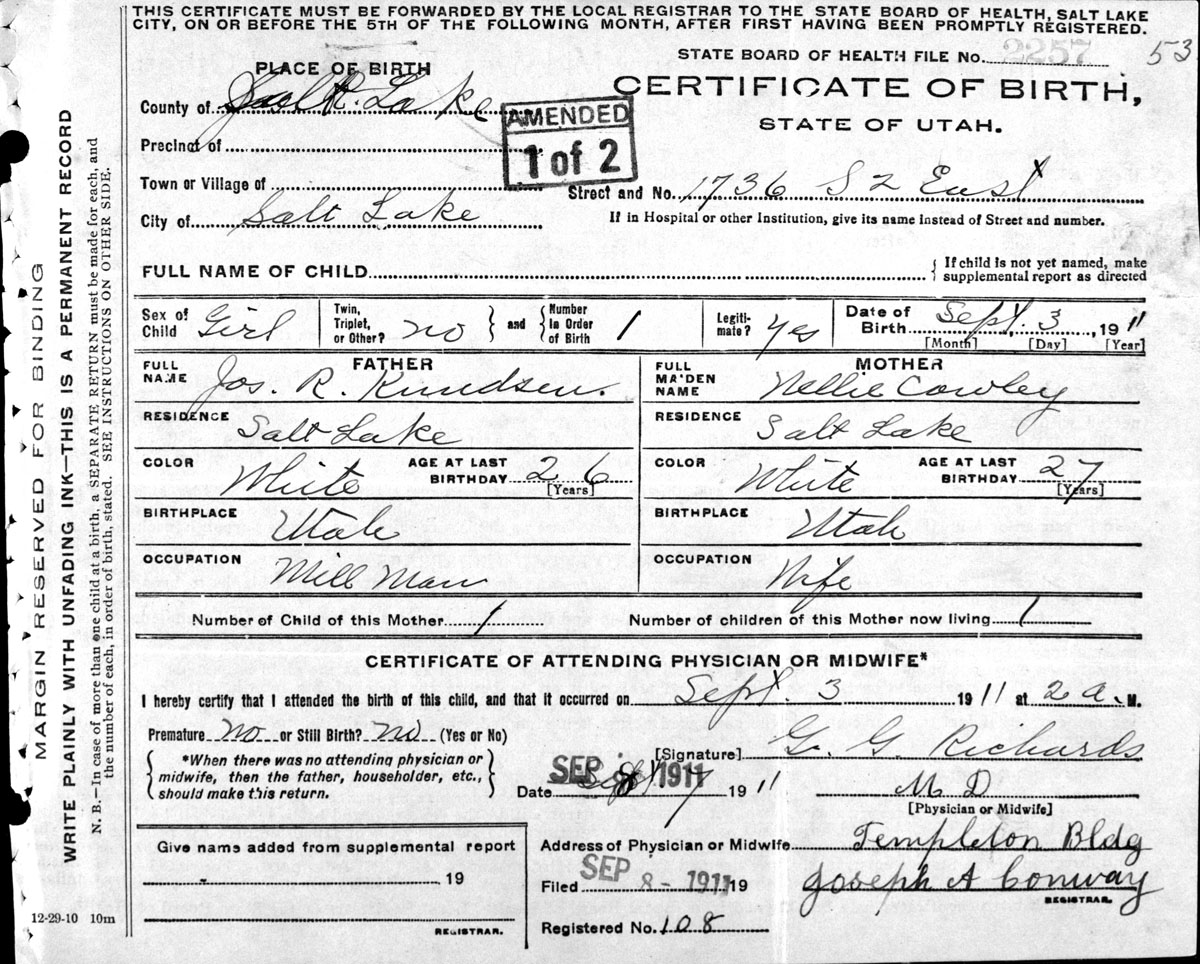 THIS CERTIFICATE MUST BE FORWARDED BY THE LOCAL REGISTRAR TO THE STATE BOARD OF HEALTH, SALT LAKE
CITY, ON OR BEFORE THE 5TH OF THE FOLLOWING MONTH, AFTER FIRST HAVING BEEN PROMPTLY REGISTERED.
STATE BOARD OF HEALTH FILE No. 2257 53
PLACE OF BIRTH
CERTIFICATE OF BIRTH,
STATE OF UTAH.
County of Salt Lake
AMENDED
1 of 2
Precinct of
Town or Village of
Street and No. 1736 S 2 East
City of Salt Lake
If in Hospital or other Institution, give its name instead of Street and number.
FULL NAME OF CHILD
{ If child is not yet named, make
supplemental report as directed
Sex of Child Girl
Twin, Triplet, or Other? no } and { Number in Order of Birth 1
Legitimate? Yes
Date of Birth Sept. 3, 1911
[Month] [Day] [Year]
FATHER
FULL NAME Jos. R. Knudsen.
MOTHER
FULL MAIDEN NAME Nellie Cowley
RESIDENCE Salt Lake
RESIDENCE Salt Lake
COLOR White AGE AT LAST BIRTHDAY 26 [Years]
COLOR White AGE AT LAST BIRTHDAY 27 [Years]
BIRTHPLACE Utah
BIRTHPLACE Utah
OCCUPATION Mill Man
OCCUPATION Wife
Number of Child of this Mother 1 Number of children of this Mother now living 1
CERTIFICATE OF ATTENDING PHYSICIAN OR MIDWIFE*
I hereby certify that I attended the birth of this child, and that it occurred on Sept 3 1911 at 2 a. M.
Premature no or Still Birth? no (Yes or No)
[Signature] G. G. Richards
{ *When there was no attending physician or
midwife, then the father, householder, etc.,
should make this return. }
SEP 8 1911
Date Sept 7 1911 M D
[Physician or Midwife]
Give name added from supplemental report
19
REGISTRAR.
Address of Physician or Midwife Templeton Bldg
Filed SEP 8-1911 19 Joseph A Conway
REGISTRAR.
Registered No. 108
12-29-10 10m
MARGIN RESERVED FOR BINDING
WRITE PLAINLY WITH UNFADING INK—THIS IS A PERMANENT RECORD
N. B.—In case of more than one child at a birth, a SEPARATE RETURN must be made for each, and
the number of each, in order of birth, stated. SEE INSTRUCTIONS ON OTHER SIDE.